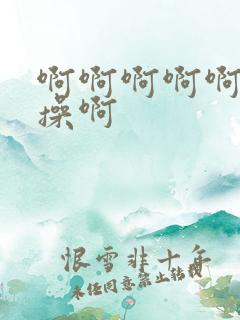 啊啊啊啊啊
操啊
恨雪非十年
未经同意禁止转载